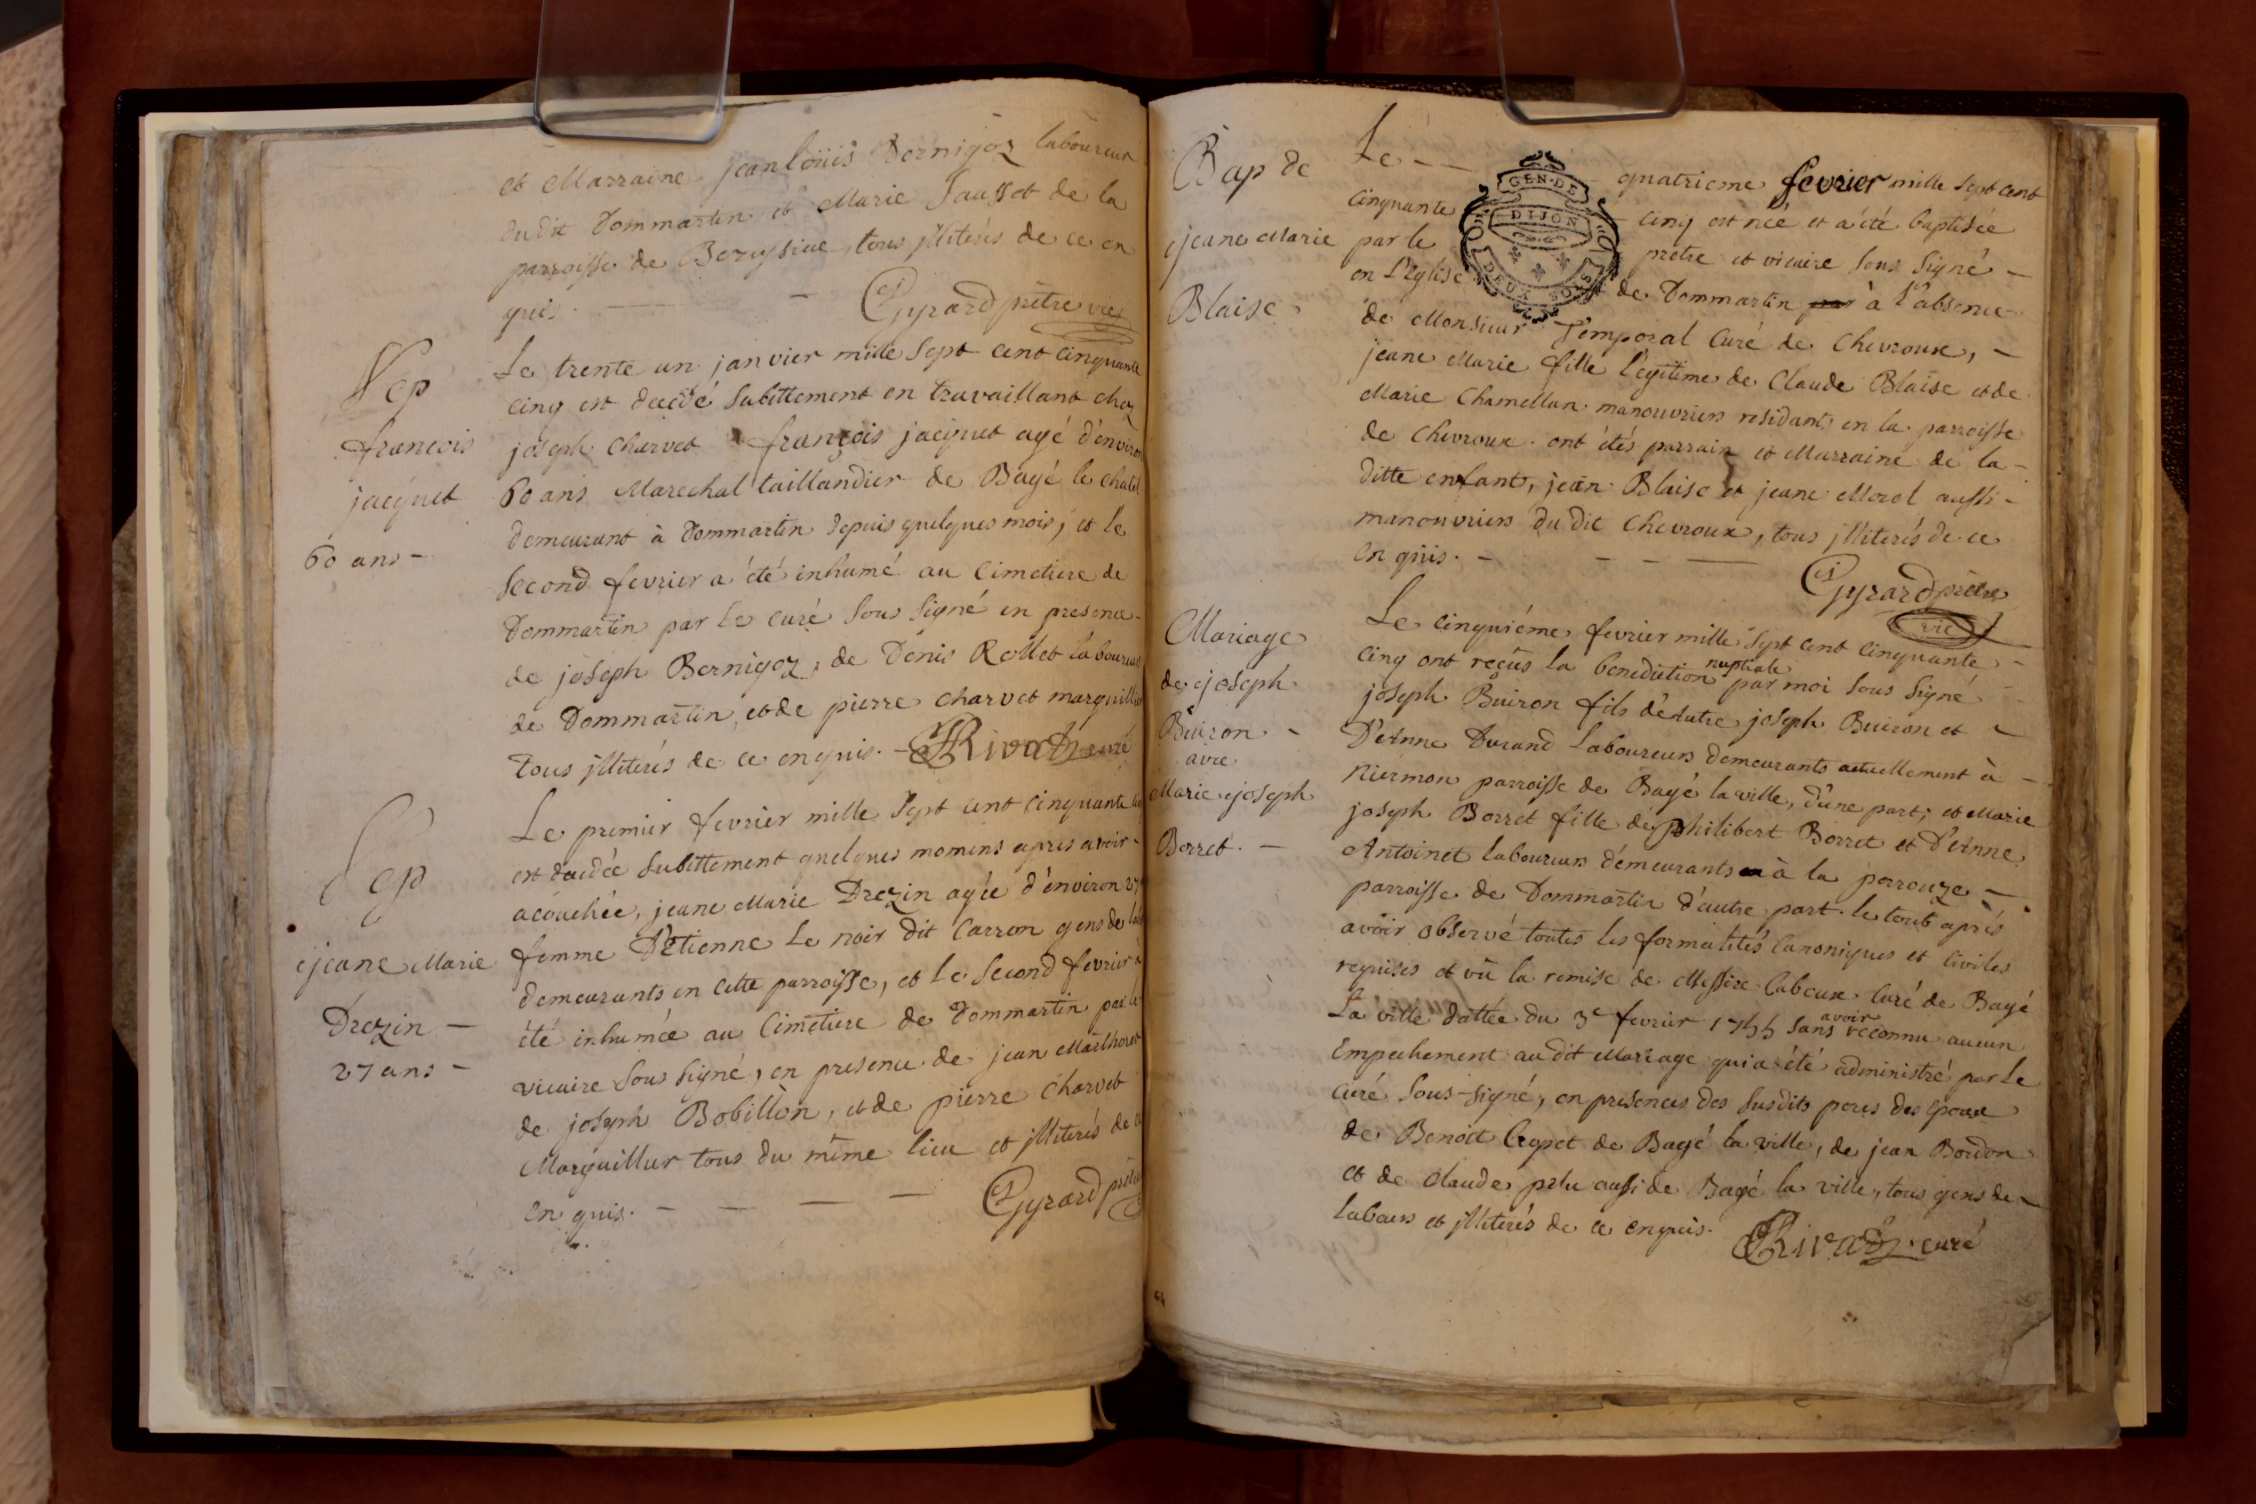 et Marraine jean loüis Bernigoz laboureur
du dit Dommartin et Marie Sausset de la
parroisse de Bereysiae, tous jlliterés de ce en
quis. Gyrard prêtre vic
Sep
françois
jacquet
60 ans
Le trente un janvier mille sept cent cinquante
cinq est decedé subittement en travaillant chez
joseph Charvet françois jacquet agé d'environ
60 ans Marechal taillandier de Bagé le chatel
demeurant à Dommartin depuis quelques mois; et le
second fevrier a été inhumé au Cimetiere de
Dommartin par le curé sous signé en presence
de joseph Bernigoz, de Denis Rollet laboureurs
de Dommartin, et de pierre Charvet marguillier
tous jlliterés de ce enquis. Rivat curé
Sep
jeane Marie
Drezin
27 ans
Le premier fevrier mille sept cent cinquante cinq
est decedée subittement quelques momens apres avoir
acouchée, jeane Marie Drezin agée d'environ 27
femme d'Etienne Le noir dit Carron gens de
demeurants en cette parroisse, et le second fevrier à
été inhumée au Cimetiere de Dommartin par le
vicaire sous signé, en presence de jean Maîthoret
de joseph Bobillon, et de pierre Charvet
Marguillier tous du même lieu et jlliterés de ce
en quis. Gyrard prêtre
Bap de
jeane Marie
Blaise
GEN·DE
DIJON
DEUX SOLS
Le quatrieme fevrier mille sept cent
cinquante cinq est née et a été baptisée
par le prêtre et vicaire sous signé
en l'Eglise de Dommartin à l'absence
de Monsieur Temporal Curé de Chevroux,
jeane Marie fille legitime de Claude Blaise et de
Marie Chamellan manouvriers residants en la parroisse
de Chevroux. ont étés parrain et Marraine de la
ditte enfant, jean Blaise et jeane Morel aussi
manouvriers du dit Chevroux, tous jlliterés de ce
en quis.
Gyrard prêtre
vic
Mariage
de joseph
Buiron
avec
Marie joseph
Borret
Le cinquiéme fevrier mille sept cent cinquante
cinq ont reçûs la benediction nuptiale par moi sous signé
joseph Buiron fils d'autre joseph Buiron et
D'Anne Durand Laboureurs demeurants actuellement à
Niermon parroisse de Bagé la ville, d'une part; et Marie
joseph Borret fille de philibert Borret et D'Anne
Antoinet laboureurs demeurants à la perrouze
parroisse de Dommartin d'autre part. le tout après
avoir observé toutes les formalités Canoniques et Civiles
requises et vû la remise de Messire Cabeux Curé de Bagé
La ville dattée du 3e fevrier 1755 sans avoir reconnu aucun
Empechement au dit Mariage qui a été administré par le
curé sous-signé, en presences des susdits peres des epoux
de Benoît Crepet de Bagé la ville, de jean Bordon
et de Claude pelu aussi de Bagé la ville, tous gens de
Labeurs et jlliterés de ce enquis. Rivat curé